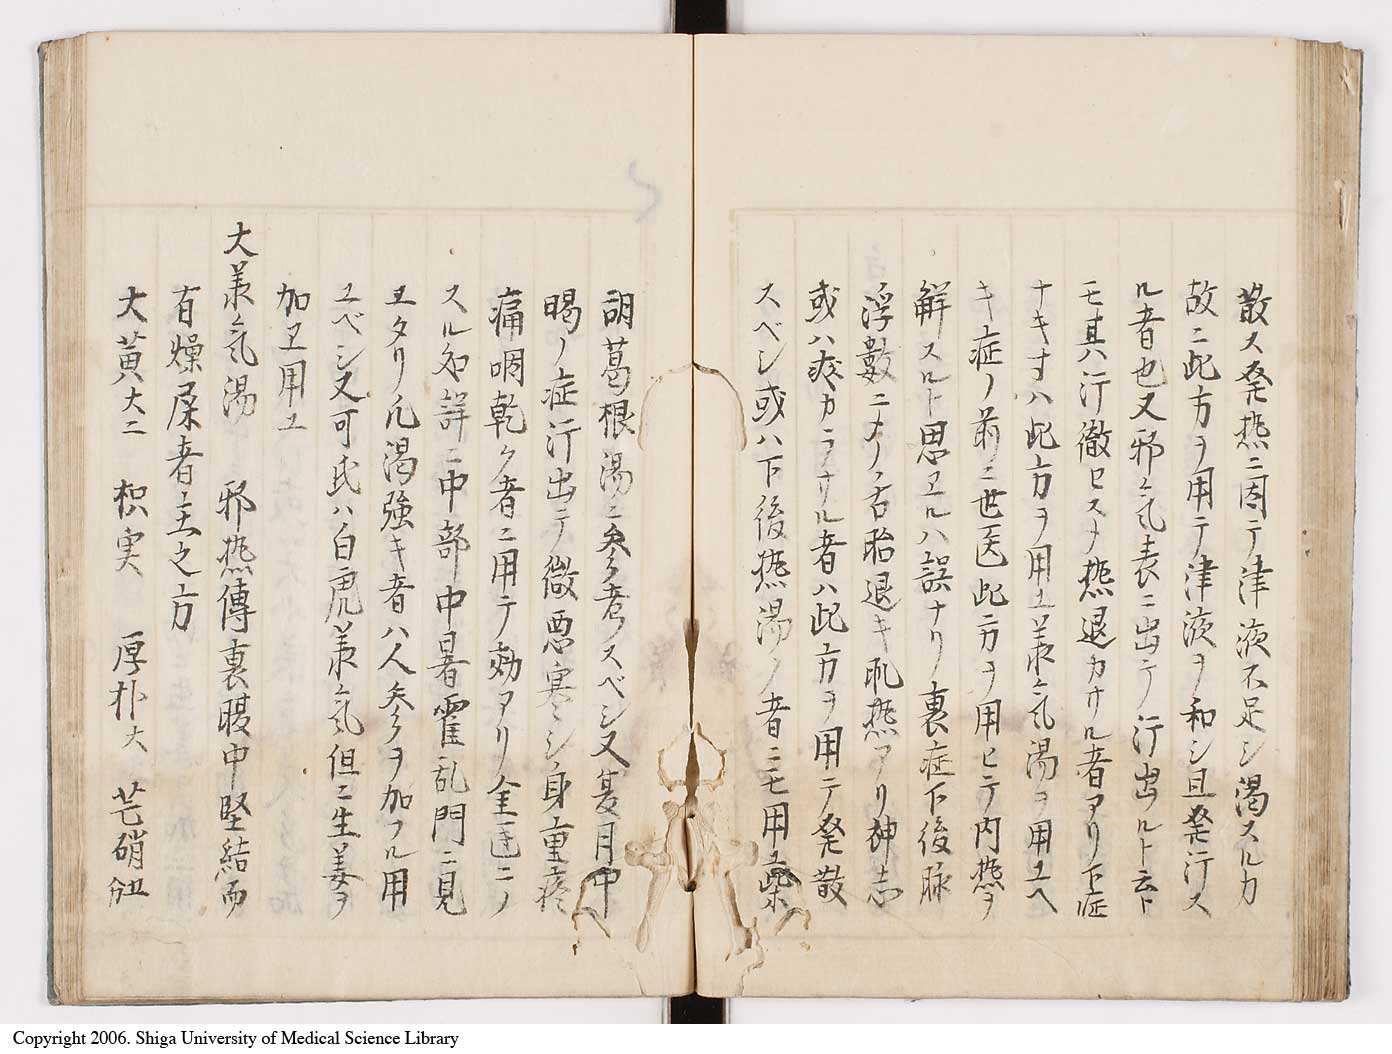 散ス発熱ニ因テ津液不足シ渇スルカ
故ニ此方ヲ用テ津液ヲ和シ且発汗ス
ル者也又邪氣表ニ出テ汗出ルト云ト
モ其汗徹セスメ熱退カサル者アリ下症
ナキ寸ハ此方ヲ用ユ承氣湯ヲ用ユヘ
キ症ノ前ニ世医此方ヲ用ヒテ内熱ヲ
解スルト思エルハ誤ナリ裏症下後脉
浮數ニメ舌胎退キ肌熱アリ神志
或ハ爽カラナル者ハ此方ヲ用テ発散
スベシ或ハ下後熱渇ノ者ニモ用ユ柴
胡葛根湯ニ参考スベシ又夏月中
暍ノ症汗出テ微悪寒シ身重疼
痛咽乾ク者ニ用テ効アリ金匱ニ
スル処詳ニ中部中暑霍乱門ニ見
ヱタリ凡渇強キ者ハ人参ヲ加フル用
ユベシ又可氏ハ白虎承氣但ニ生姜ヲ
加ヱ用ユ
大承氣湯 邪熱傳裏腹中堅結而
有燥屎者主之方
大黄大二 枳実 厚朴大 芒硝
Copyright 2006. Shiga University of Medical Science Library